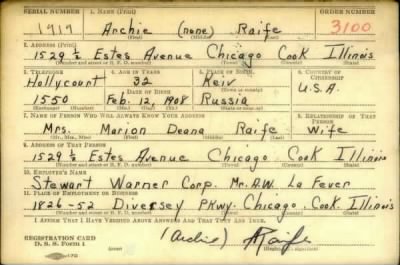 SERIAL NUMBER 1. NAME (Print) ORDER NUMBER
1919 Archie (none) Raife 3100
(First) (Middle) (Last)
2. ADDRESS (Print)
1529 ½ Estes Avenue Chicago Cook Illinois
(Number and street or R. F. D. number) (Town) (County) (State)
3. TELEPHONE 4. AGE IN YEARS 5. PLACE OF BIRTH 6. COUNTRY OF CITIZENSHIP
Hollycourt 32 Keiv
DATE OF BIRTH (Town or county) U.S.A.
1550 Feb. 12, 1908 Russia
(Exchange) (Number) (Mo.) (Day) (Yr.) (State or country)
7. NAME OF PERSON WHO WILL ALWAYS KNOW YOUR ADDRESS 8. RELATIONSHIP OF THAT PERSON
Mrs. Marion Deana Raife Wife
(Mr., Mrs., Miss) (First) (Middle) (Last)
9. ADDRESS OF THAT PERSON
1529 ½ Estes Avenue Chicago Cook Illinois
(Number and street or R. F. D. number) (Town) (County) (State)
10. EMPLOYER'S NAME
Stewart Warner Corp. Mr. A.W. La Fever
11. PLACE OF EMPLOYMENT OR BUSINESS
1826-52 Diversey Pkwy. Chicago. Cook Illinois
(Number and street or R. F. D. number) (Town) (County) (State)
I AFFIRM THAT I HAVE VERIFIED ABOVE ANSWERS AND THAT THEY ARE TRUE.
REGISTRATION CARD
D. S. S. Form 1 (Archie) Raife
(over) (Registrant's signature)